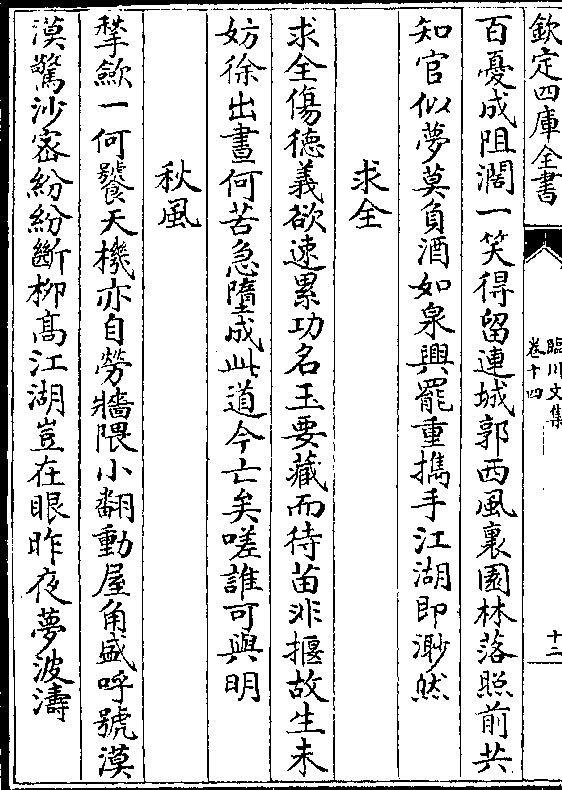 欽定四庫全書
臨川文集
卷十四
十二
百憂成阻濶一笑得留連城郭西風裏園林落照前共
知官似夢莫負酒如泉興罷重擕手江湖即渺然
求全
求全傷徳義欲速累功名玉要藏而待苗非揠故生未
妨徐出晝何苦急墮成此道今亡矣嗟誰可與明
秋風
揫歛一何饕天機亦自勞牆隈小翻動屋角盛呼號漠
漠驚沙宻紛紛斷柳髙江湖豈在眼昨夜夢波濤